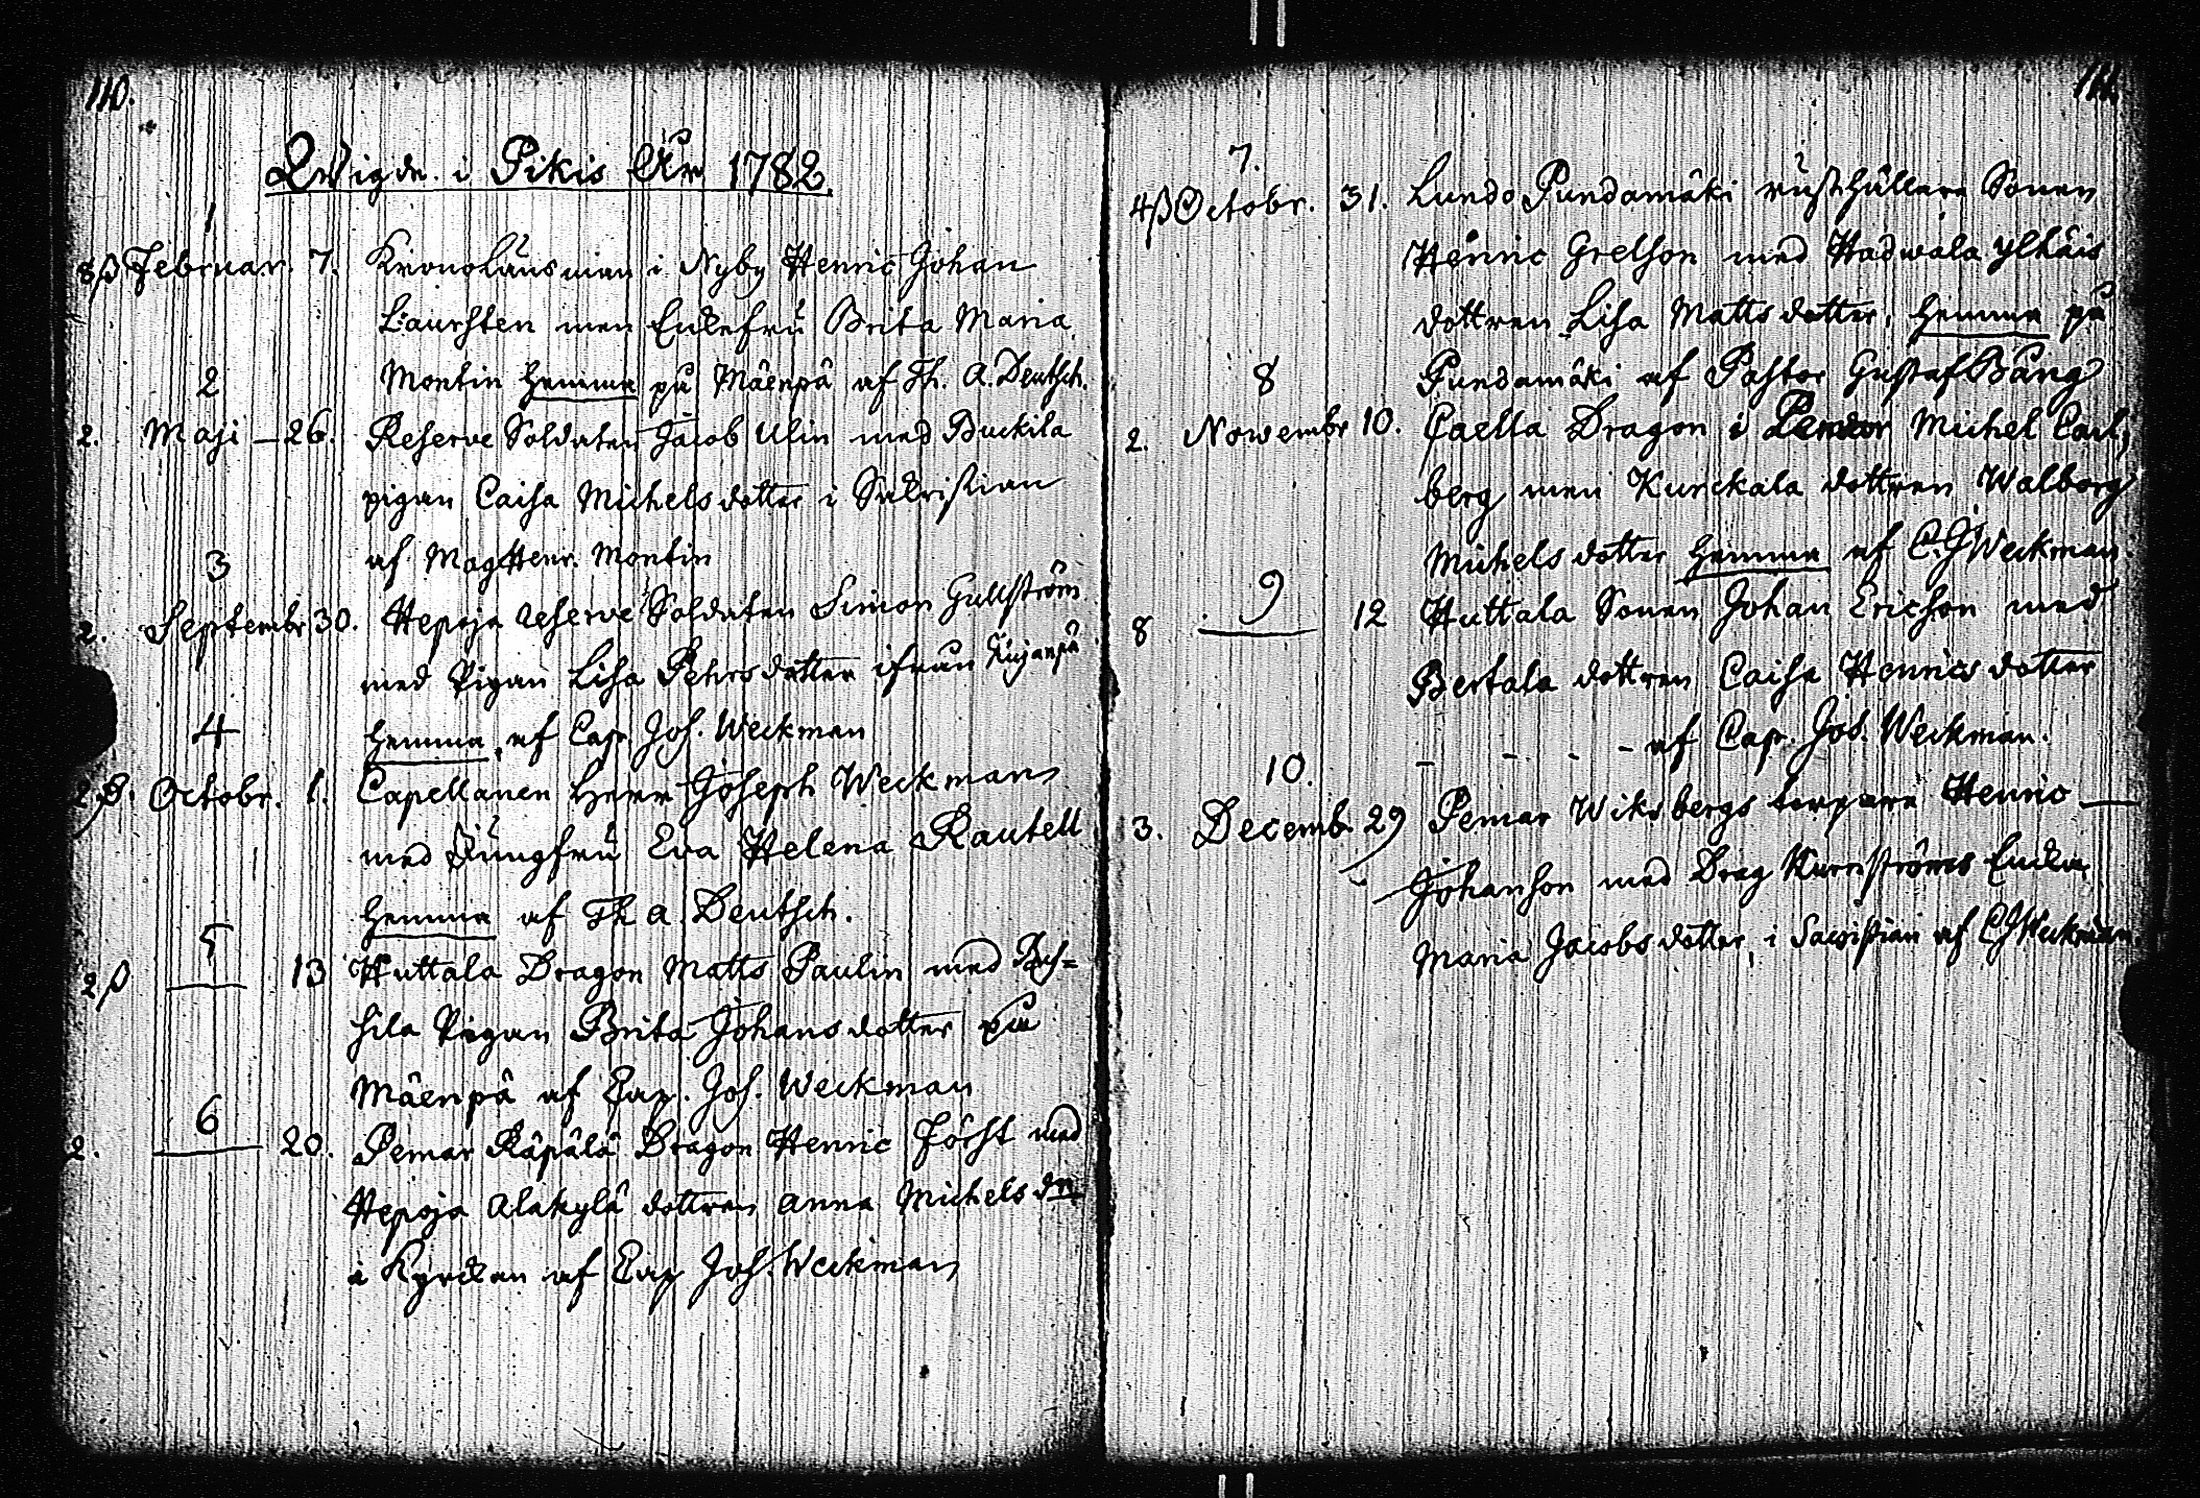 110.
Wigde i Pikis År 1782
1
8ß Februar. 7. Kronolänsman i Nyby Henric Johan
Laursten med Enkefru Brita Maria
2
Montin hemma på Mäenpä af Th. A. Deutsch.
2. Maji – 26. Reserve Soldaten Jacob Ulin med Buckila
pigan Caisa Michelsdotter i Sakristian
af Mag Henr. Montin
3
2. Septembr 30. Hepoja reserve Soldaten Simon Gullström
med Pigan Lisa Pehrsdotter ifrån Kujanpä
4
hemma, af Cap. Jos. Weckman
2ß. Octobr. 1. Capellanen Herr Joseph Weckman
med Jungfru Eva Helena Rautell
hemma af Th A. Deutsch.
5
2ß — 13 Huttala Dragon Matts Paulin med
sila Pigan Brita Johansdotter på
Mäenpä af Cap. Jos. Weckman
6
2. — 20. Pemar Räpälä Dragon Henric Först med
Hepoja Alakylä dottren Anna Michels dr
i Kyrckan af Cap Jos. Weckman
111.
7.
4ß Octobr. 31. Lundo Pundamäki rusthållare Sonen
Henric Grelsson med Hadwala Ylhäis
dottren Lisa Matts dotter, hemma på
8
Pundamäki af Pastor Gustaf Bång
2. Nowembr 10. Caella Dragon i Pemar Michel Carl,
berg med Kurckala dottren Walborg
Michelsdotter hemma af C. J Weckman.
9
8 — 12 Huttala Sonen Johan Ericsson med
Bertala dottren Caisa Henrics dotter
– – – – – af Cap. Jos. Weckman.
10.
3. Decemb. 29 Pemar Wiksbergs torpare Henric —
Johansson med Drag Kurnströms Encka
Maria Jacobsdotter, i Sacristian af C J Weckman